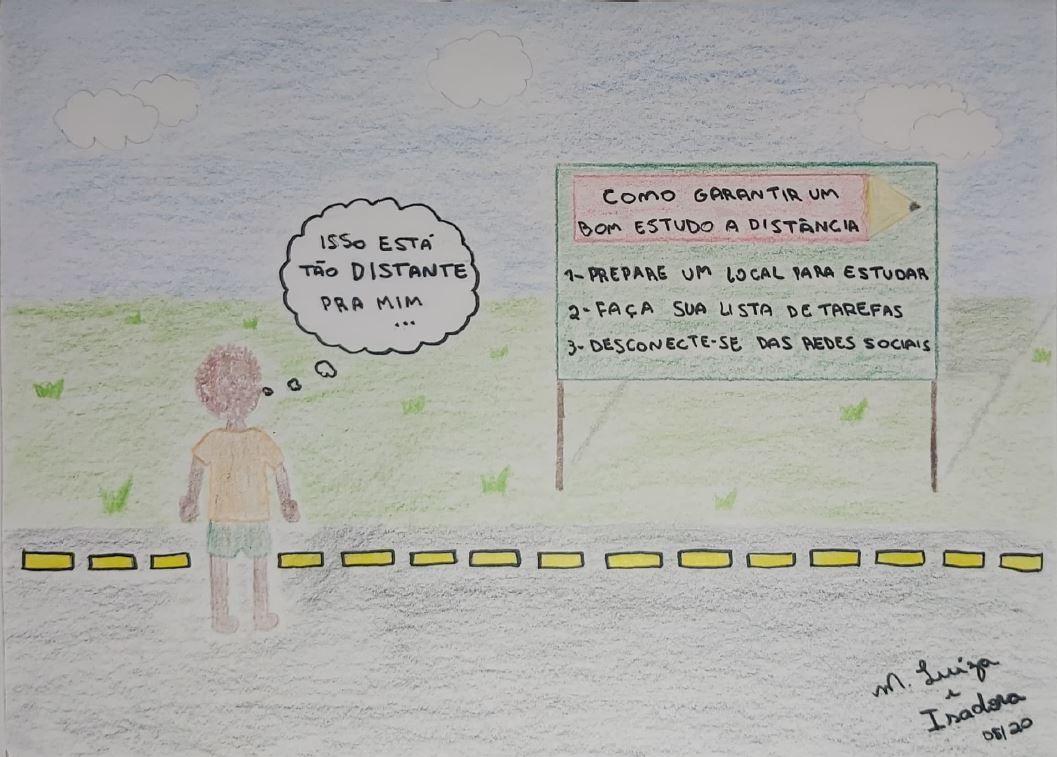 ISSO ESTÁ
TÃO DISTANTE
PRA MIM
...
COMO GARANTIR UM
BOM ESTUDO A DISTÂNCIA
1- PREPARE UM LOCAL PARA ESTUDAR
2- FAÇA SUA LISTA DE TAREFAS
3- DESCONECTE-SE DAS REDES SOCIAIS
M. Luiza
e
Isadora
08/20